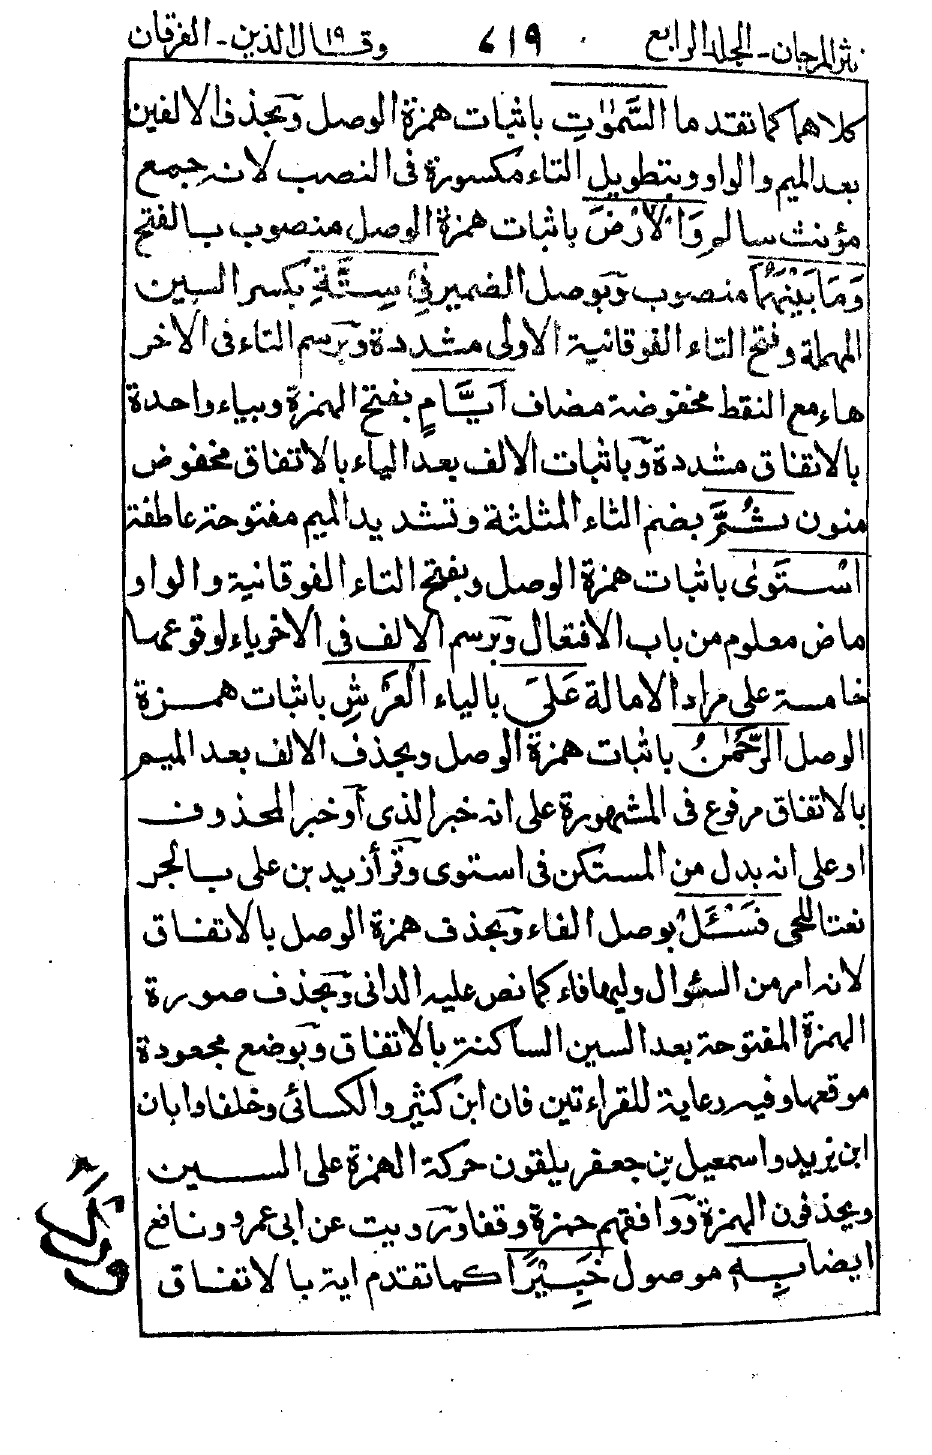 نثر المرجان - الجلد الرابع ٧١٩ وقال الذين ١٩ - الفرقان
كلاهما كما تقدما السَّمٰوٰتِ باثبات همزة الوصل وبحذف الالفين
بعد الميم والواو وبتطويل التاء مكسورة فى النصب لانه جمع
مؤنث سالم وَالْاَرْضَ باثبات همزة الوصل منصوب بالفتح
وَمَا بَيْنَهُمَا منصوب وبوصل الضمير فِيْ سِتَّةِ بكسر السين
المهملة وفتح التاء الفوقانية الاولى مشددة وبرسم التاء فى الاخر
هاء مع النقط مخفوضة مضاف اَيَّامٍ بفتح الهمزة وبياء واحدة
بالاتفاق مشددة وباثبات الالف بعد الياء بالاتفاق مخفوض
منون ثُمَّ بضم الثاء المثلثة وتشديد الميم مفتوحة عاطفة
اسْتَوٰى باثبات همزة الوصل وبفتح التاء الفوقانية والواو
ماض معلوم من باب الافتعال وبرسم الالف فى الاخر ياء لوقوعها
خامسة على مراد الامالة عَلَى بالياء الْعَرْشِ باثبات همزة
الوصل الرَّحْمٰنُ باثبات همزة الوصل وبحذف الالف بعد الميم
بالاتفاق مرفوع فى المشهورة على انه خبر الذى أو خبر المحذوف
او على انه بدل من المستكن فى استوى وقرأ زيد بن على بالجر
نعتا للحى فَسْـَٔلْ بوصل الفاء وبحذف همزة الوصل بالاتفاق
لانه امر من السؤال وليها فاء كما نص عليه الدانى وبحذف صورة
الهمزة المفتوحة بعد السين الساكنة بالاتفاق وبوضع مجعودة
موقعها وفيه رعاية للقراءتين فان ابن كثير والكسائى وخلفا وابان
ابن يزيد واسمعيل بن جعفر يلقون حركة الهمزة على السين
ويحذفون الهمزة ووافقهم حمزة وقفا ورويت عن ابى عمرو ونافع
ايضا بِهٖ موصول خَبِيْرًا كما تقدم اية بالاتفاق